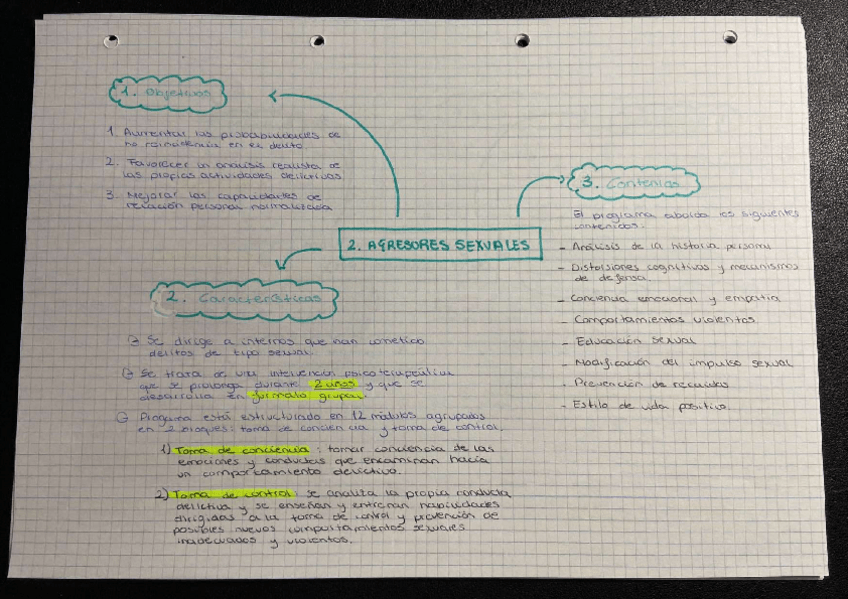 1. Objetivos
1. Aumentar las probabilidades de
no reincidencia en el delito.
2. Favorecer un análisis realista de
las propias actividades delictivas
3. Mejorar las capacidades de
relación personal normalizada
2. AGRESORES SEXUALES
2. Características
Se dirige a internos que han cometido
delitos de tipo sexual.
Se trata de una intervención psicoterapéutica
que se prolonga durante 2 años y que se
desarrolla en formato grupal.
Programa está estructurado en 12 módulos agrupados
en 2 bloques: toma de conciencia y toma de control.
1) Toma de conciencia: tomar conciencia de las
emociones y conductas que encaminan hacia
un comportamiento delictivo.
2) Toma de control: se analiza la propia conducta
delictiva y se enseñan y entrenan habilidades
dirigidas a la toma de control y prevención de
posibles nuevos comportamientos sexuales
inadecuados y violentos.
3. Contenidos
El programa aborda los siguientes
contenidos:
- Análisis de la historia personal
- Distorsiones cognitivas y mecanismos
de defensa.
- Conciencia emocional y empatía
- Comportamientos violentos
- Educación sexual
- Modificación del impulso sexual
- Prevención de recaídas
- Estilo de vida positivo